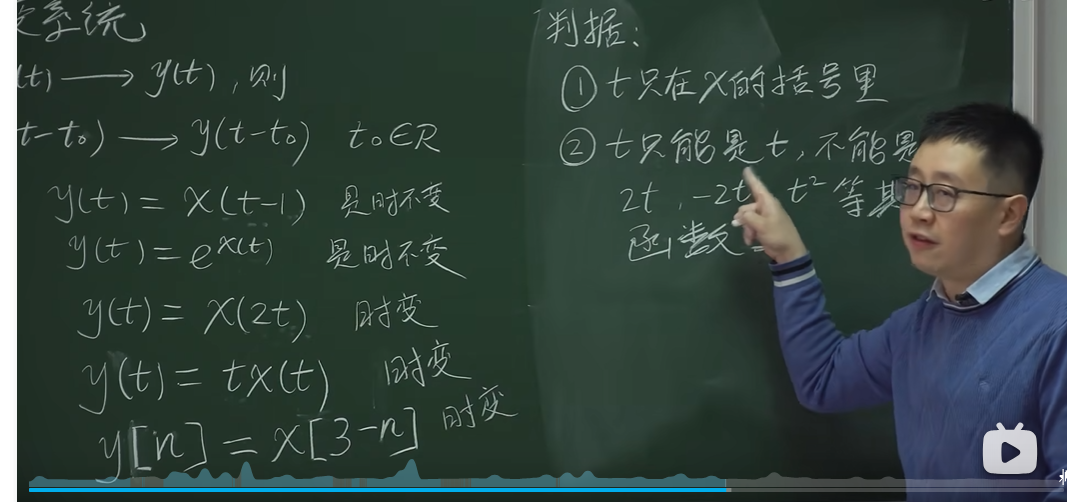 系统
(t) ⟶ y(t),则
t-t₀) ⟶ y(t-t₀) t₀∈R
y(t) = x(t-1) 是时不变
y(t) = e^{x(t)} 是时不变
y(t) = x(2t) 时变
y(t) = tx(t) 时变
y[n] = x[3-n] 时变
判据:
① t只在x的括号里
② t只能是t,不能是
2t,-2t t²等其
函数